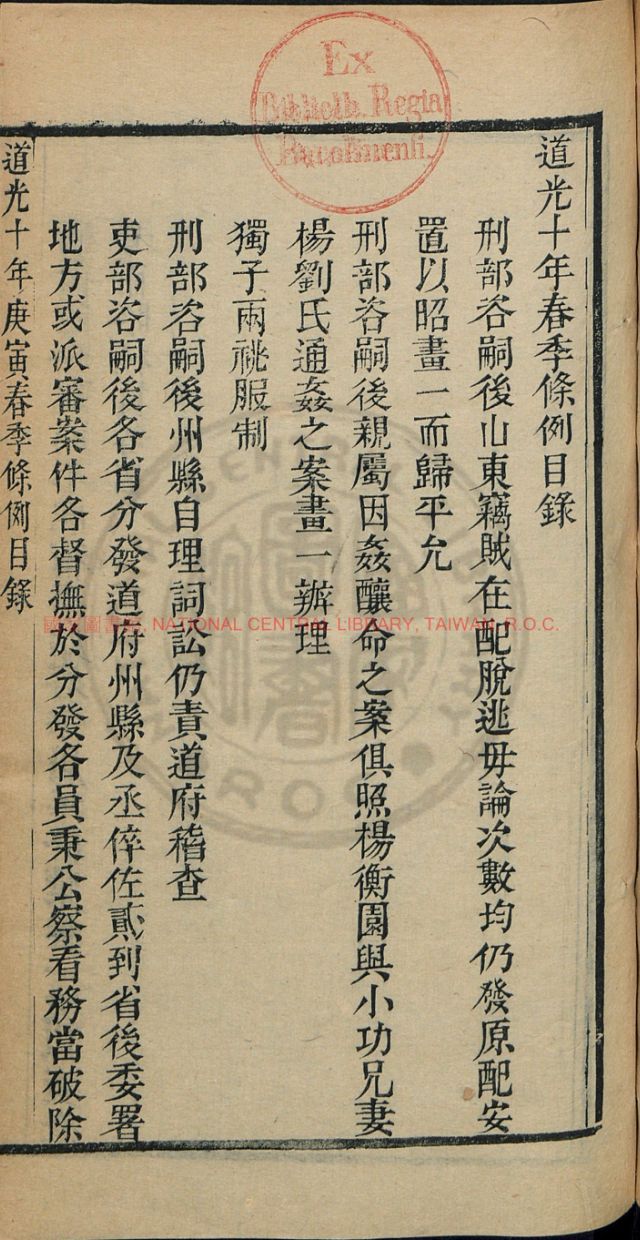 道光十年春季條例目錄
刑部咨嗣後山東竊賊在配脫逃毋論次數均仍發原配安
置以昭畫一而歸平允
刑部咨嗣後親屬因姦釀命之案俱照楊衡園與小功兄妻
楊劉氏通姦之案畫一辦理
獨子兩祧服制
刑部咨嗣後州縣自理詞訟仍責道府稽查
吏部咨嗣後各省分發道府州縣及丞倅佐貳到省後委署
地方或派審案件各督撫於分發各員秉公察看務當破除
道光十年庚寅春季條例目錄
Ex
Biblioth. Regia
Berolinensi.
國家圖書館 NATIONAL CENTRAL LIBRARY, TAIWAN, R.O.C.